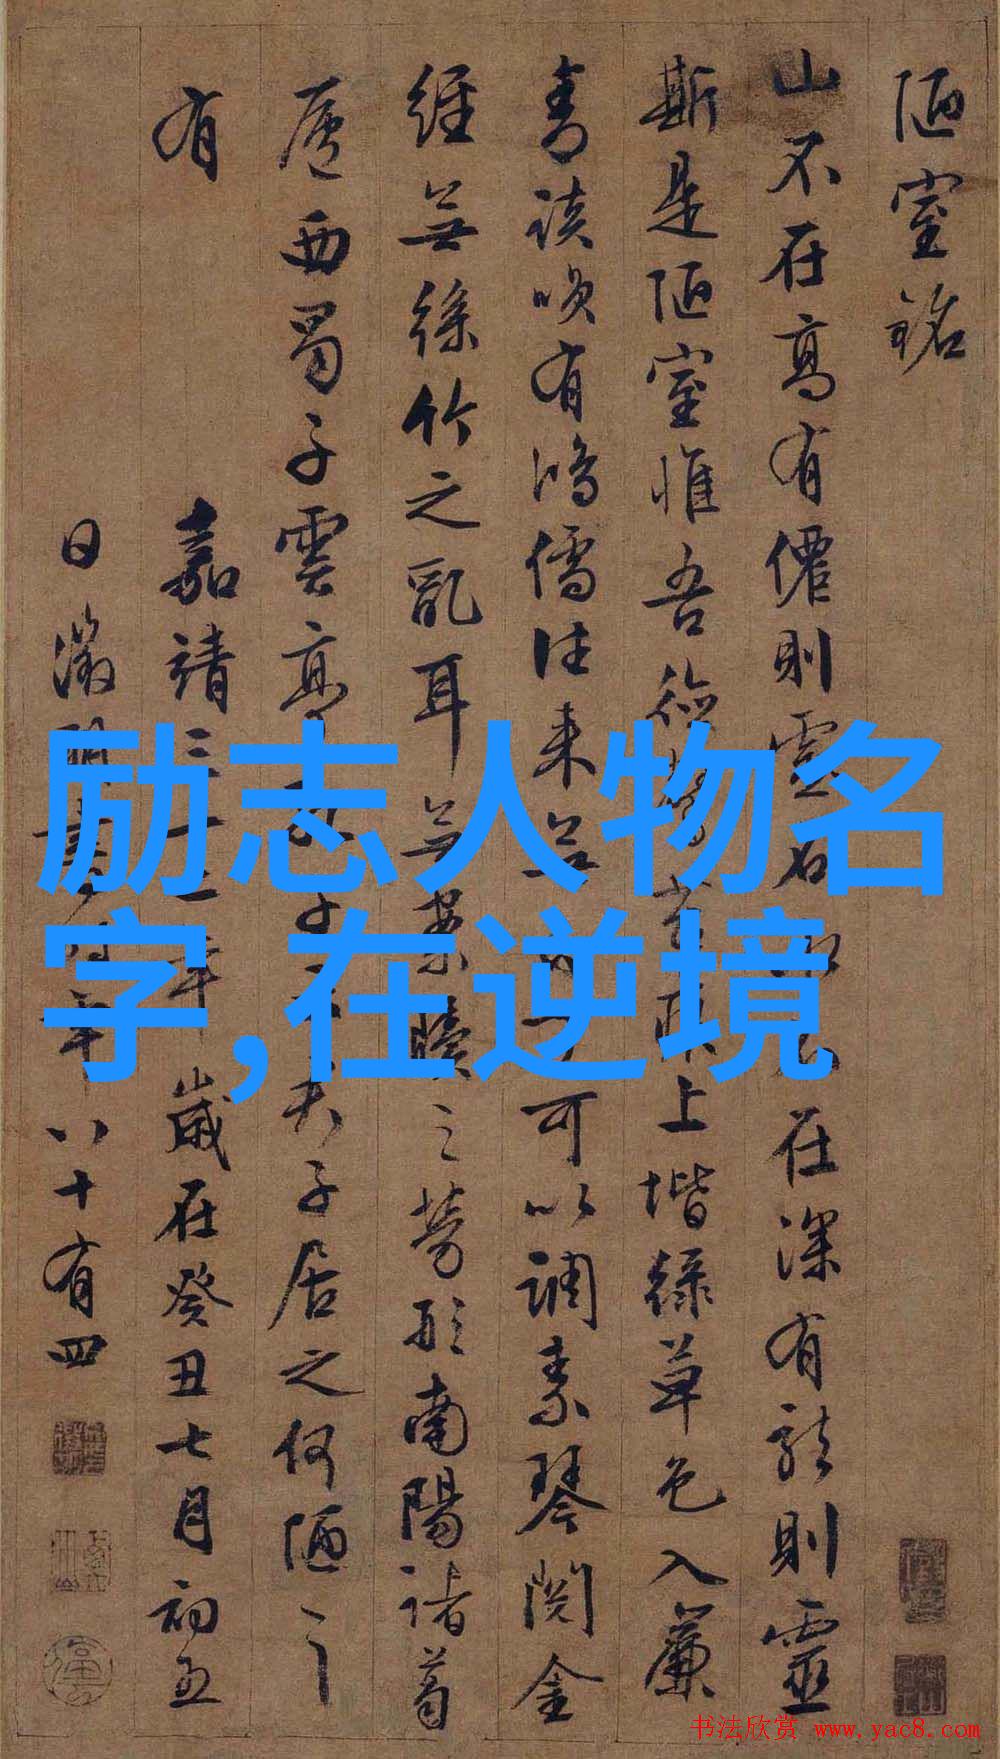 陋室銘
山不在高有僊則名在深有龍則靈
斯是陋室惟吾德上堦綠草色入簾
青談咲有鴻儒往来可以調素琴閱金
經無絲竹之亂耳無案牘之勞形南陽諸葛
廬西蜀子雲亭夫子居之何陋之
有
嘉靖三十二年歲在癸丑七月初五
日徵明年八十有四
励志人物名
字,在逆境
书法欣赏 www.yac8.com